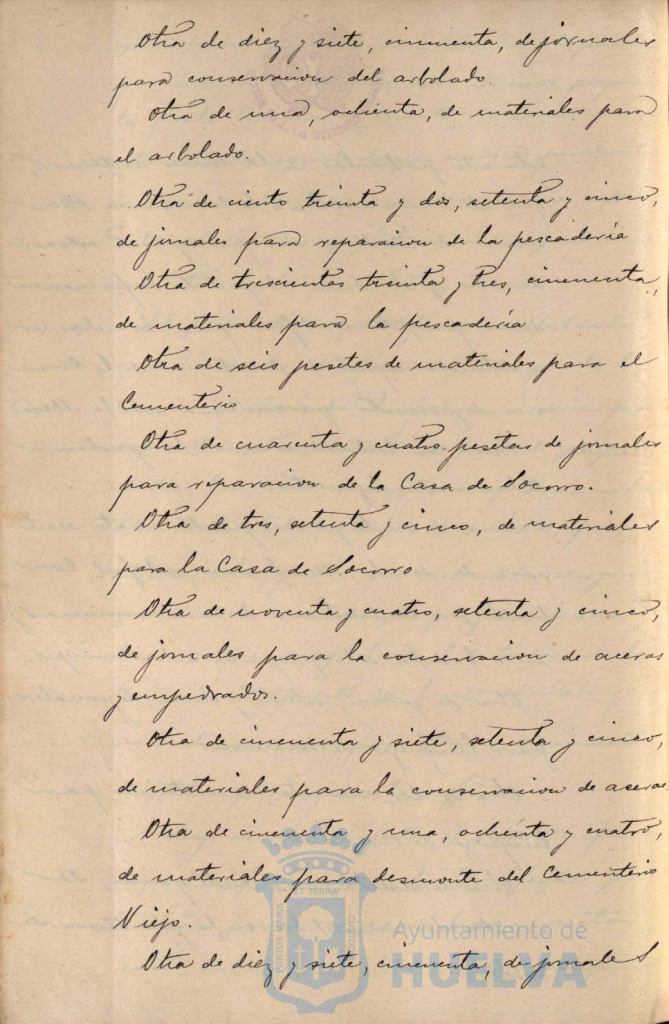 Otra de diez y siete, cincuenta, de jornales
para conservacion del arbolado.
Otra de una, ochenta, de materiales para
el arbolado.
Otra de ciento treinta y dos, setenta y cinco,
de jornales para reparacion de la pescadería
Otra de trescientas treinta y tres, cincuenta,
de materiales para la pescadería
Otra de seis pesetas de materiales para el
Cementerio
Otra de cuarenta y cuatro pesetas de jornales
para reparacion de la Casa de Socorro.
Otra de tres, setenta y cinco, de materiales
para la Casa de Socorro
Otra de noventa y cuatro, setenta y cinco,
de jornales para la conservacion de aceras
y empedrados.
Otra de cincuenta y siete, setenta y cinco,
de materiales para la conservacion de aceras
Otra de cincuenta y una, ochenta y cuatro,
de materiales para desmonte del Cementerio
Viejo.
Otra de diez y siete, cincuenta, de jornales
Ayuntamiento de
HUELVA
PORTUS MARIS ET TERRÆ CUSTODIA